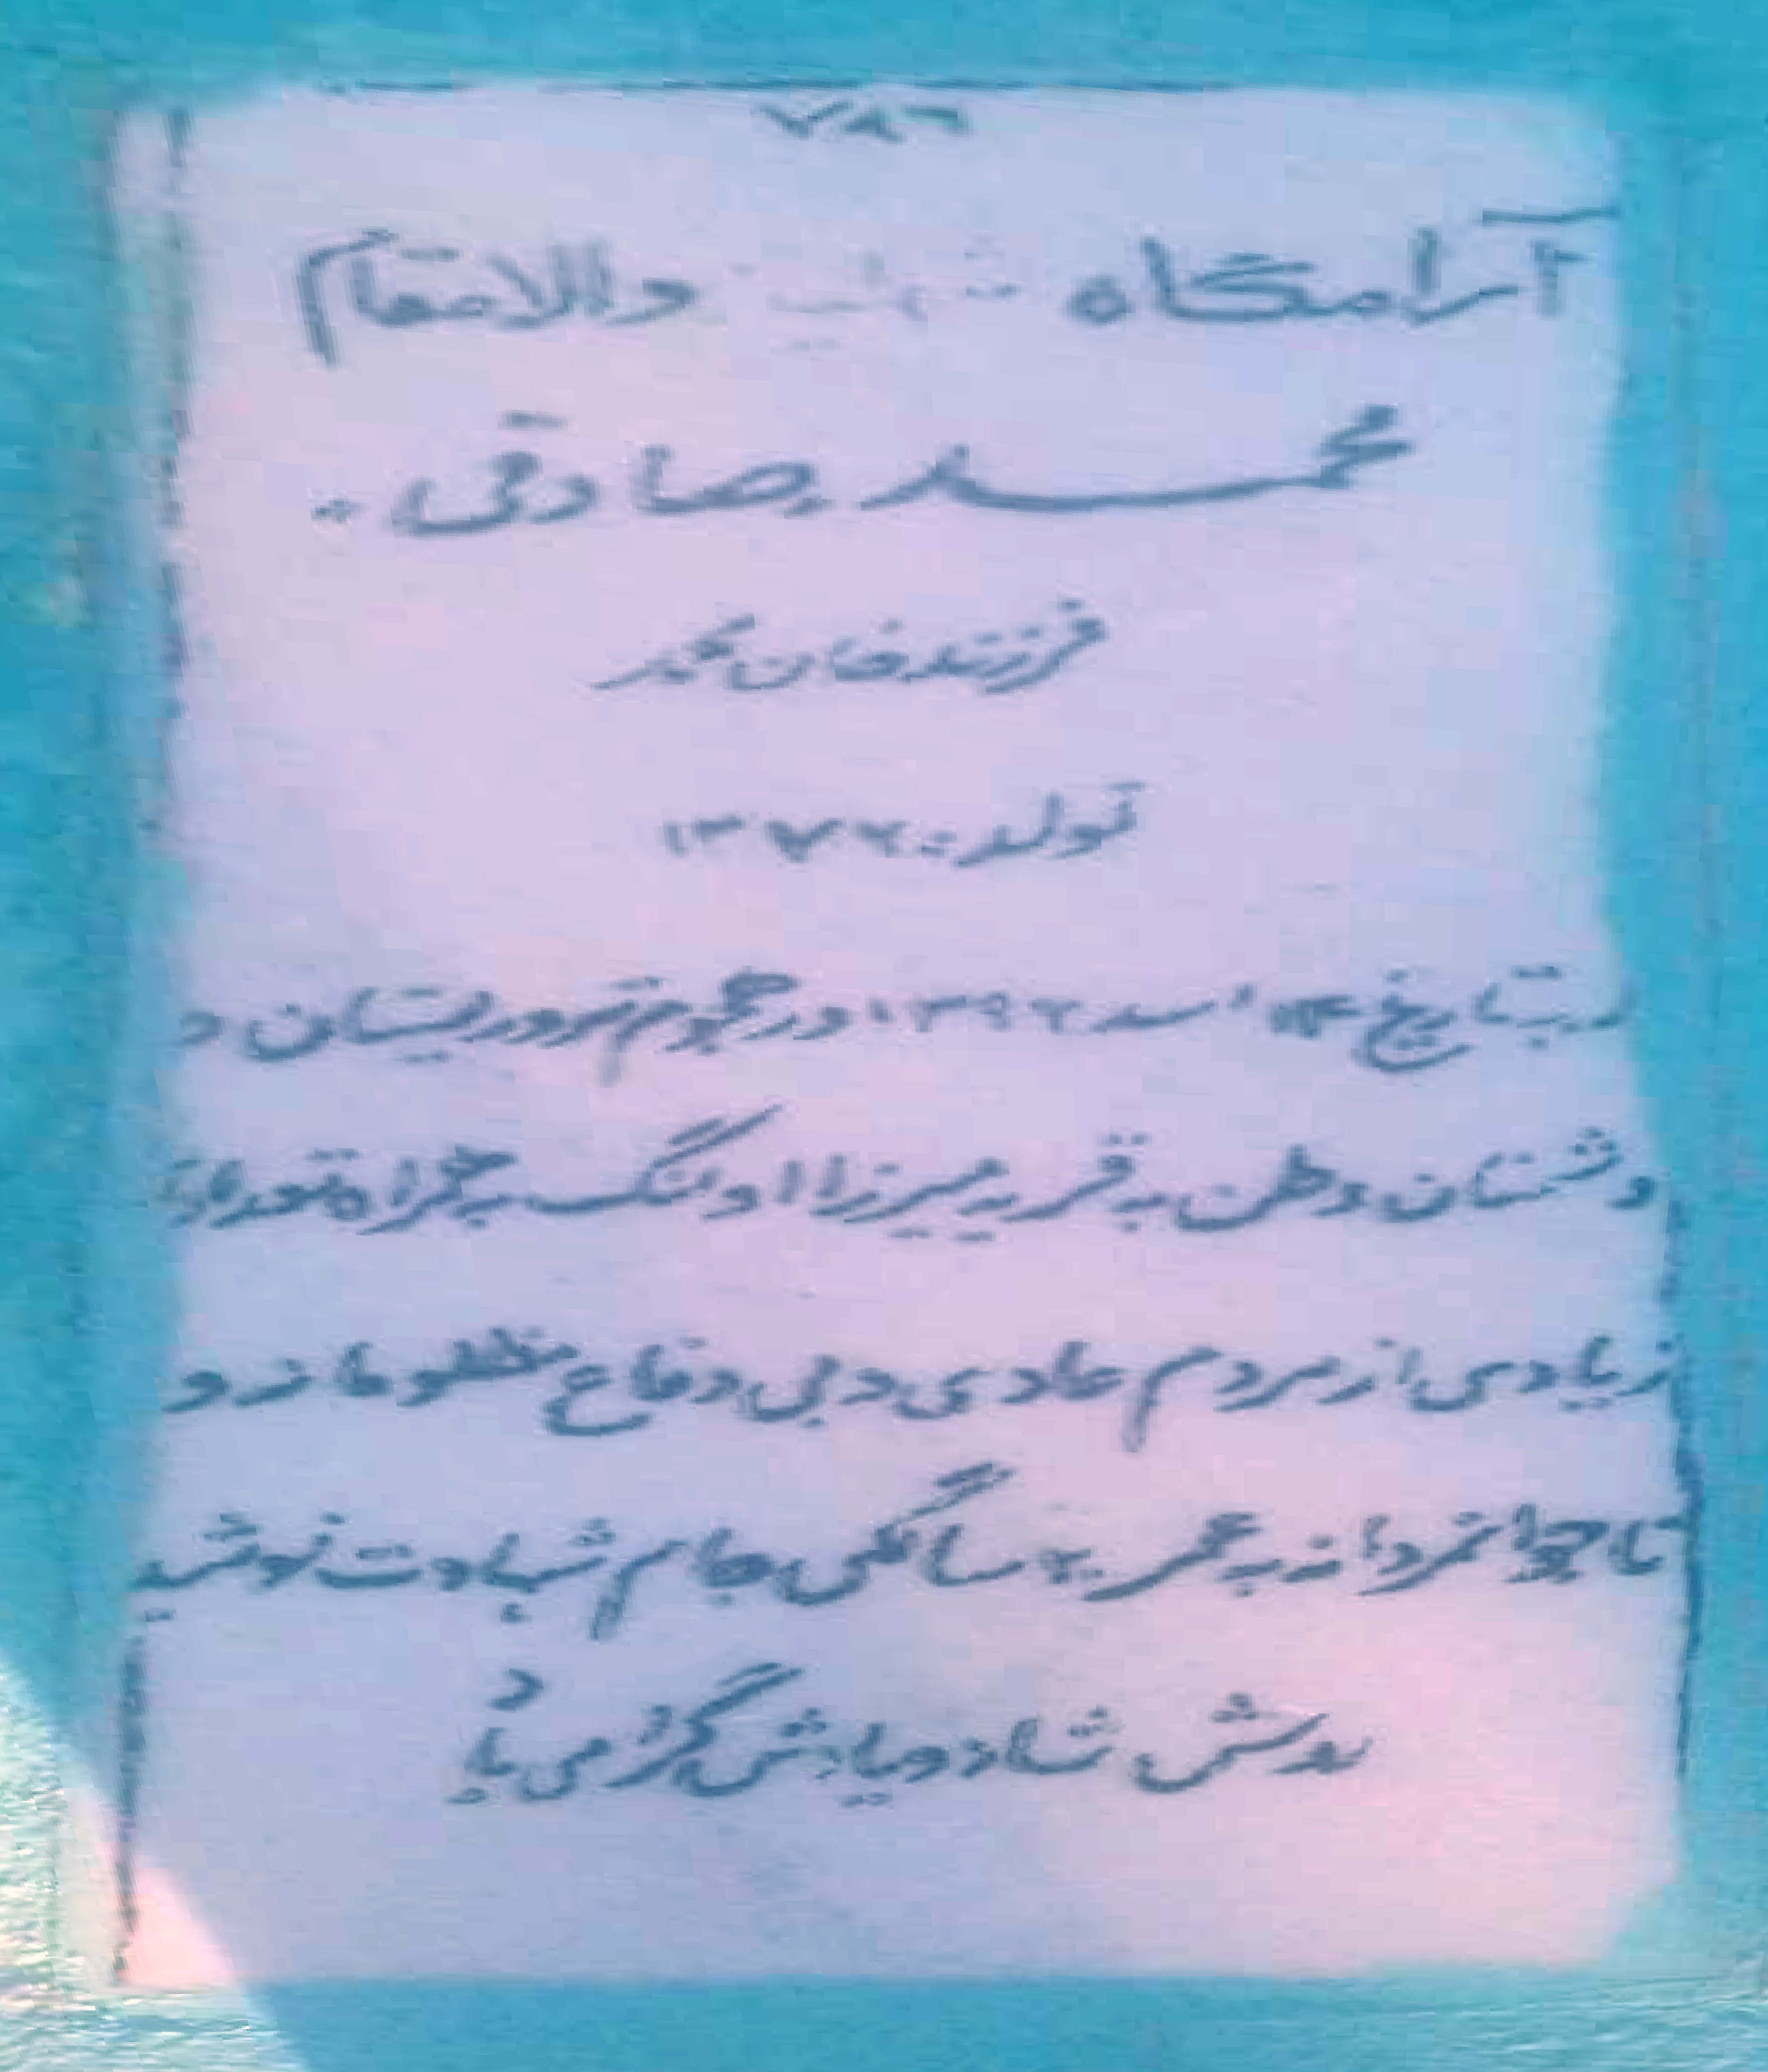 ۷۸۶
آرامگاه شهید والامقام
محمد صادقی
فرزند خان محمد
تولد: ۱۳۷۶
بتاریخ ۱۴ اسد ۱۳۹۶ در هجوم تروریستان و
دشمنان وطن به قریه میرزا اولنگ به همراه تعداد
زیادی از مردم عادی و بی دفاع مظلومانه و
ناجوانمردانه به عمر ۲۰ سالگی جام شهادت نوشید
روحش شاد و یادش گرامی باد